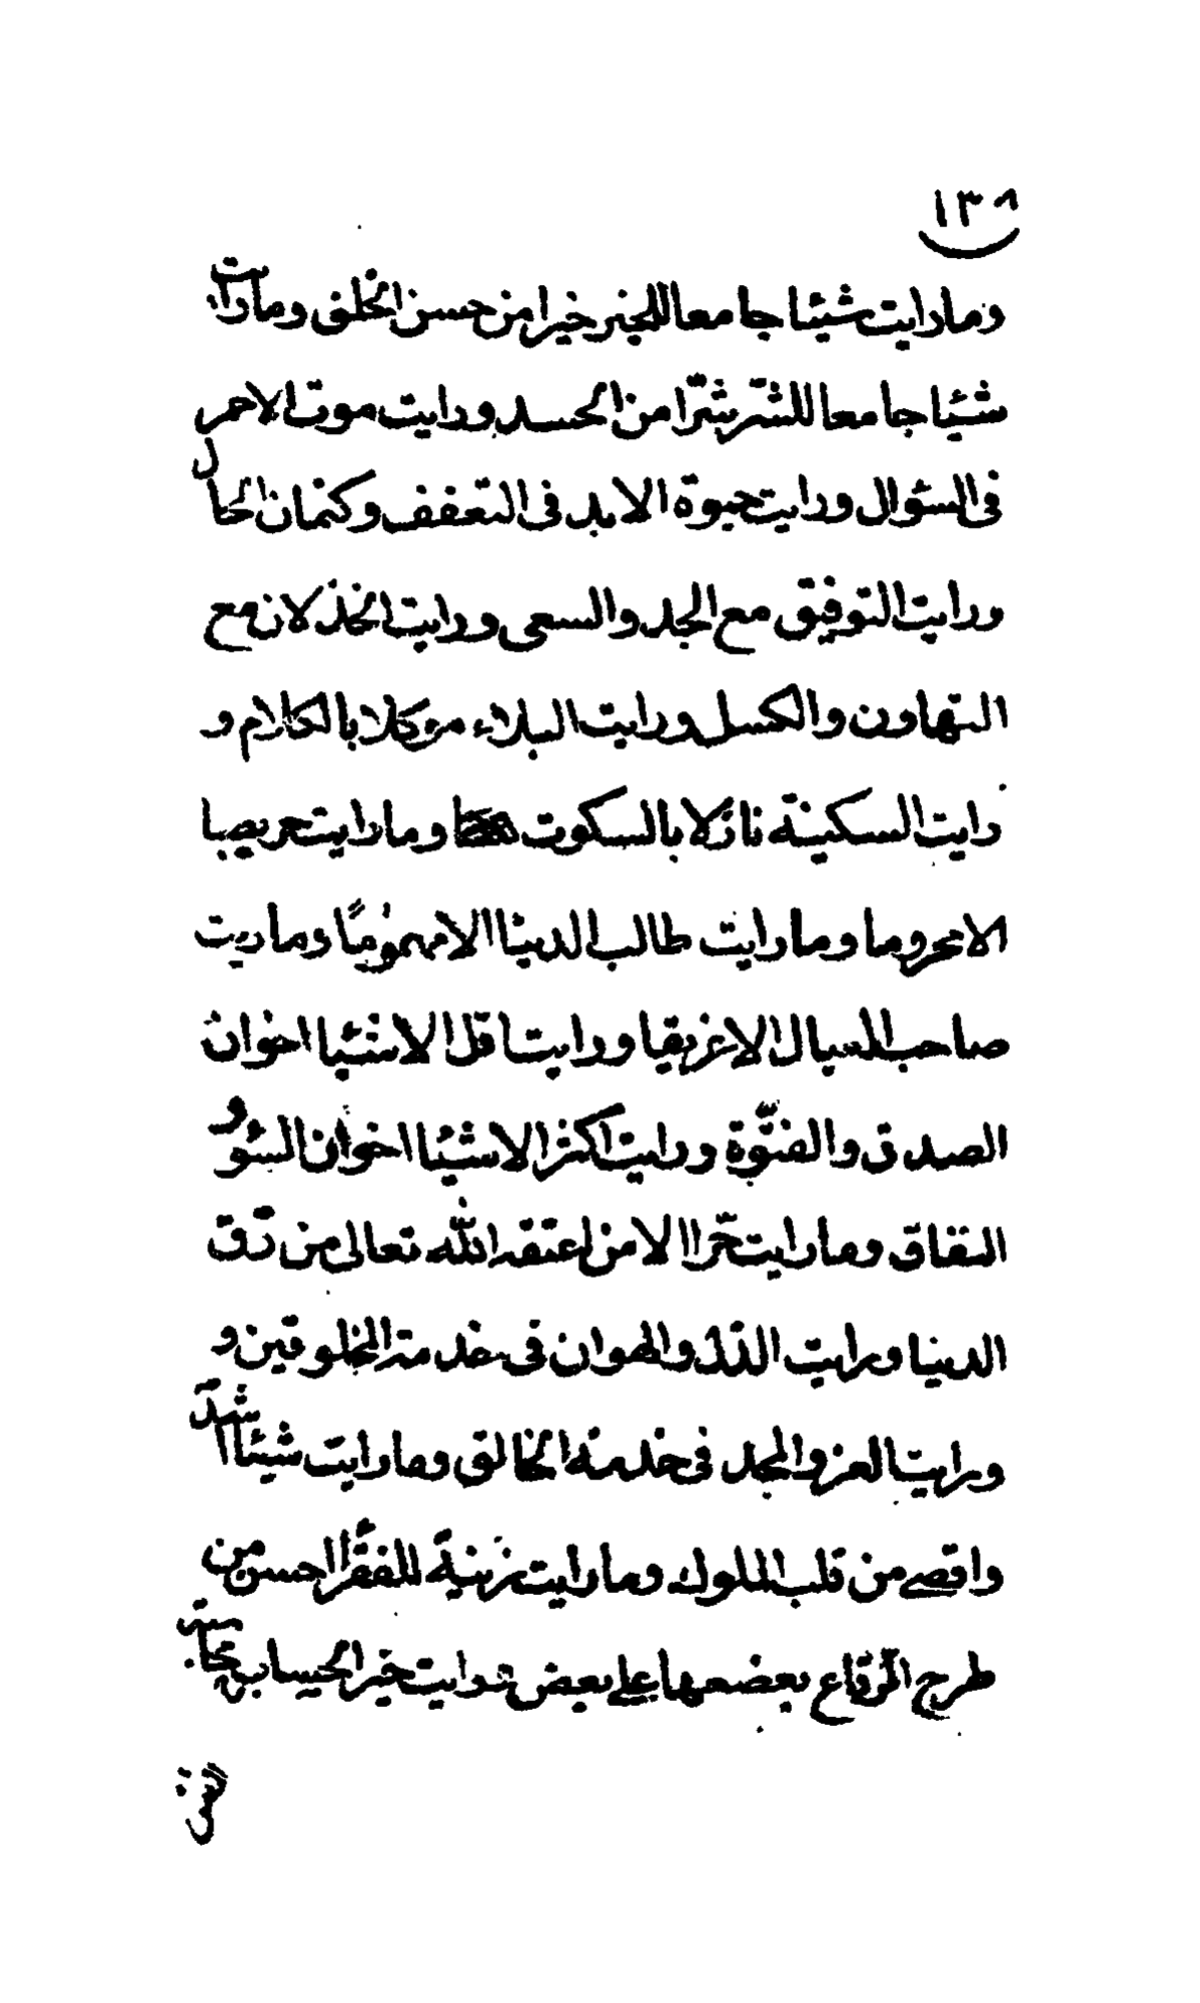 ١٣٨
ومارايت شيئا جامعا للخير خيرا من حسن الخلق ومارايت
شيئا جامعا للشر شرّا من الحسد ورايت موت الاحمر
فى السؤال ورايت حيوة الابد فى التعفف وكتمان الحال
ورايت التوفيق مع الجد والسعى ورايت الخذلان مع
التهاون والكسل ورايت البلاء موكلا بالكلام و
رايت السكينة نازلا بالسكوت ومارايت حريصا
الا محروما ومارايت طالب الدنيا الا مهمومًا وماريت
صاحب العيال الا غريقا ورايت اقل الاشيا اخوان
الصدق والفتوّة ورايت اكثر الاشيا اخوان السؤ و
النفاق ومارايت حّرا الا من اعتقه الله تعالى من رّق
الدنيا ورايت الذل والهوان فى خدمة المخلوقين و
ورايت العز والمجد فى خدمة الخالق ومارايت شيئا اشدّ
واقصے من قلب الملوك ومارايت زينة للفقرا احسن من
طرح الرّقاع بعضها على بعض ورايت خير الحساب محاسبة
النفس